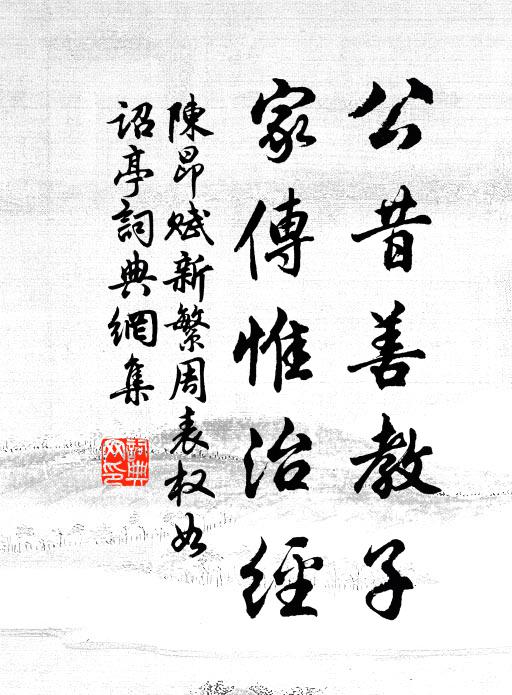 公昔善教子
家傳惟治經
陳昂賦新繁周表权如
詔亭詞典網集
詞典网印